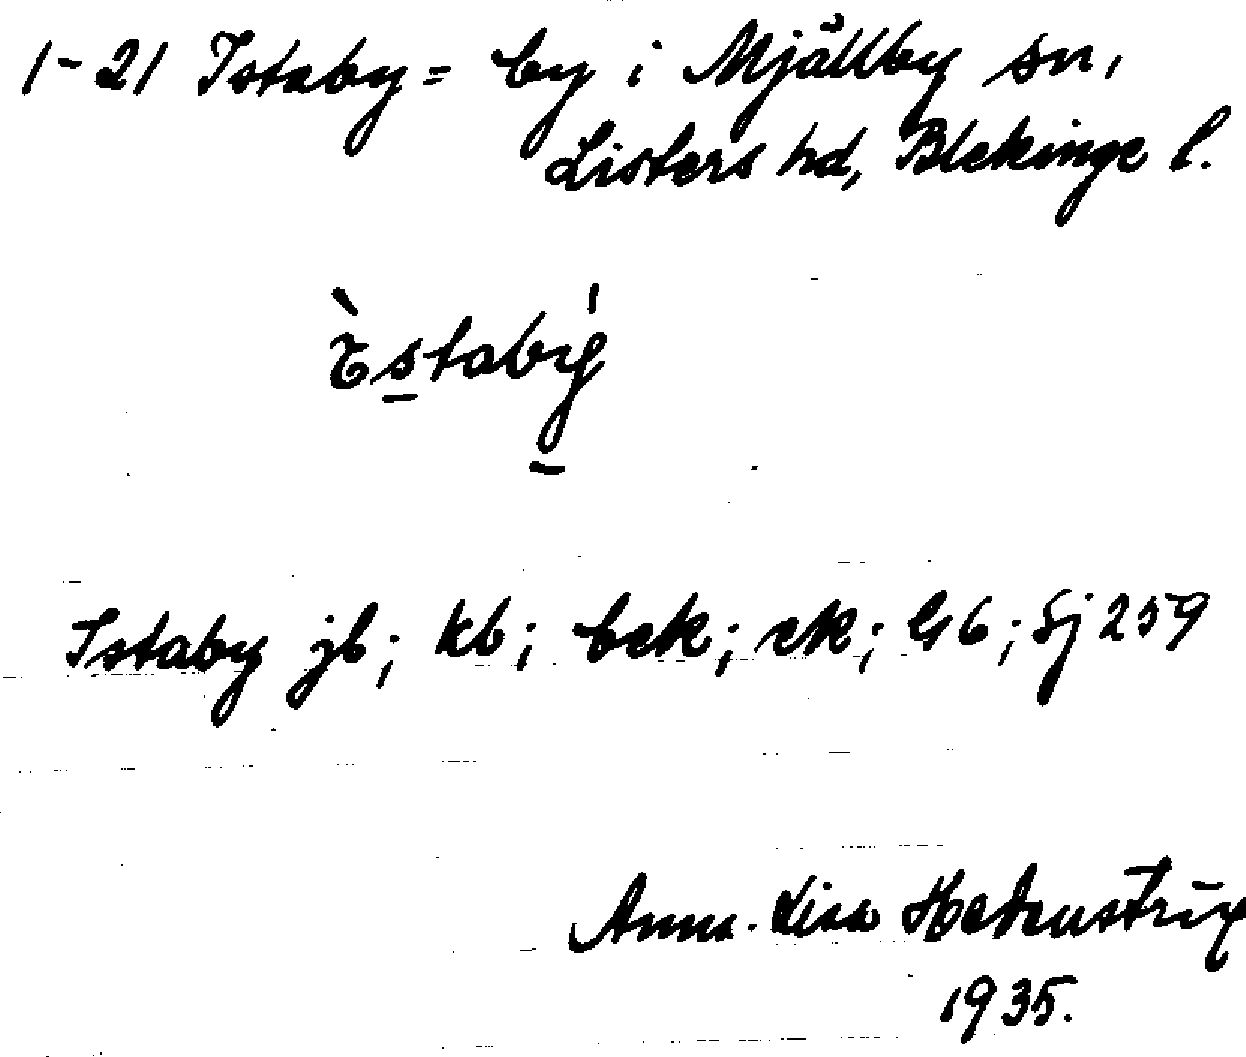 1-21 Istaby = by i Mjällby sn,
Listers hd, Blekinge l.
Ɛ̀stabý
Istaby jb; kb; bek; ek; G6; Sj 259
Anna-Lisa
1935.